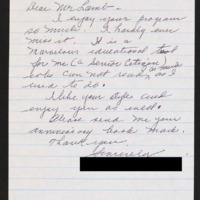 Dear Mr Lamb-
I enjoy your program
so much. I hardly ever
miss it. It is a
marvelous educational tool
for me (a Senior Citizen)
who can not read as much as I
used to do.
I like your styles and
enjoy you as well.
Please send me your
anniversary book mark.
Thank you.
Sincerely